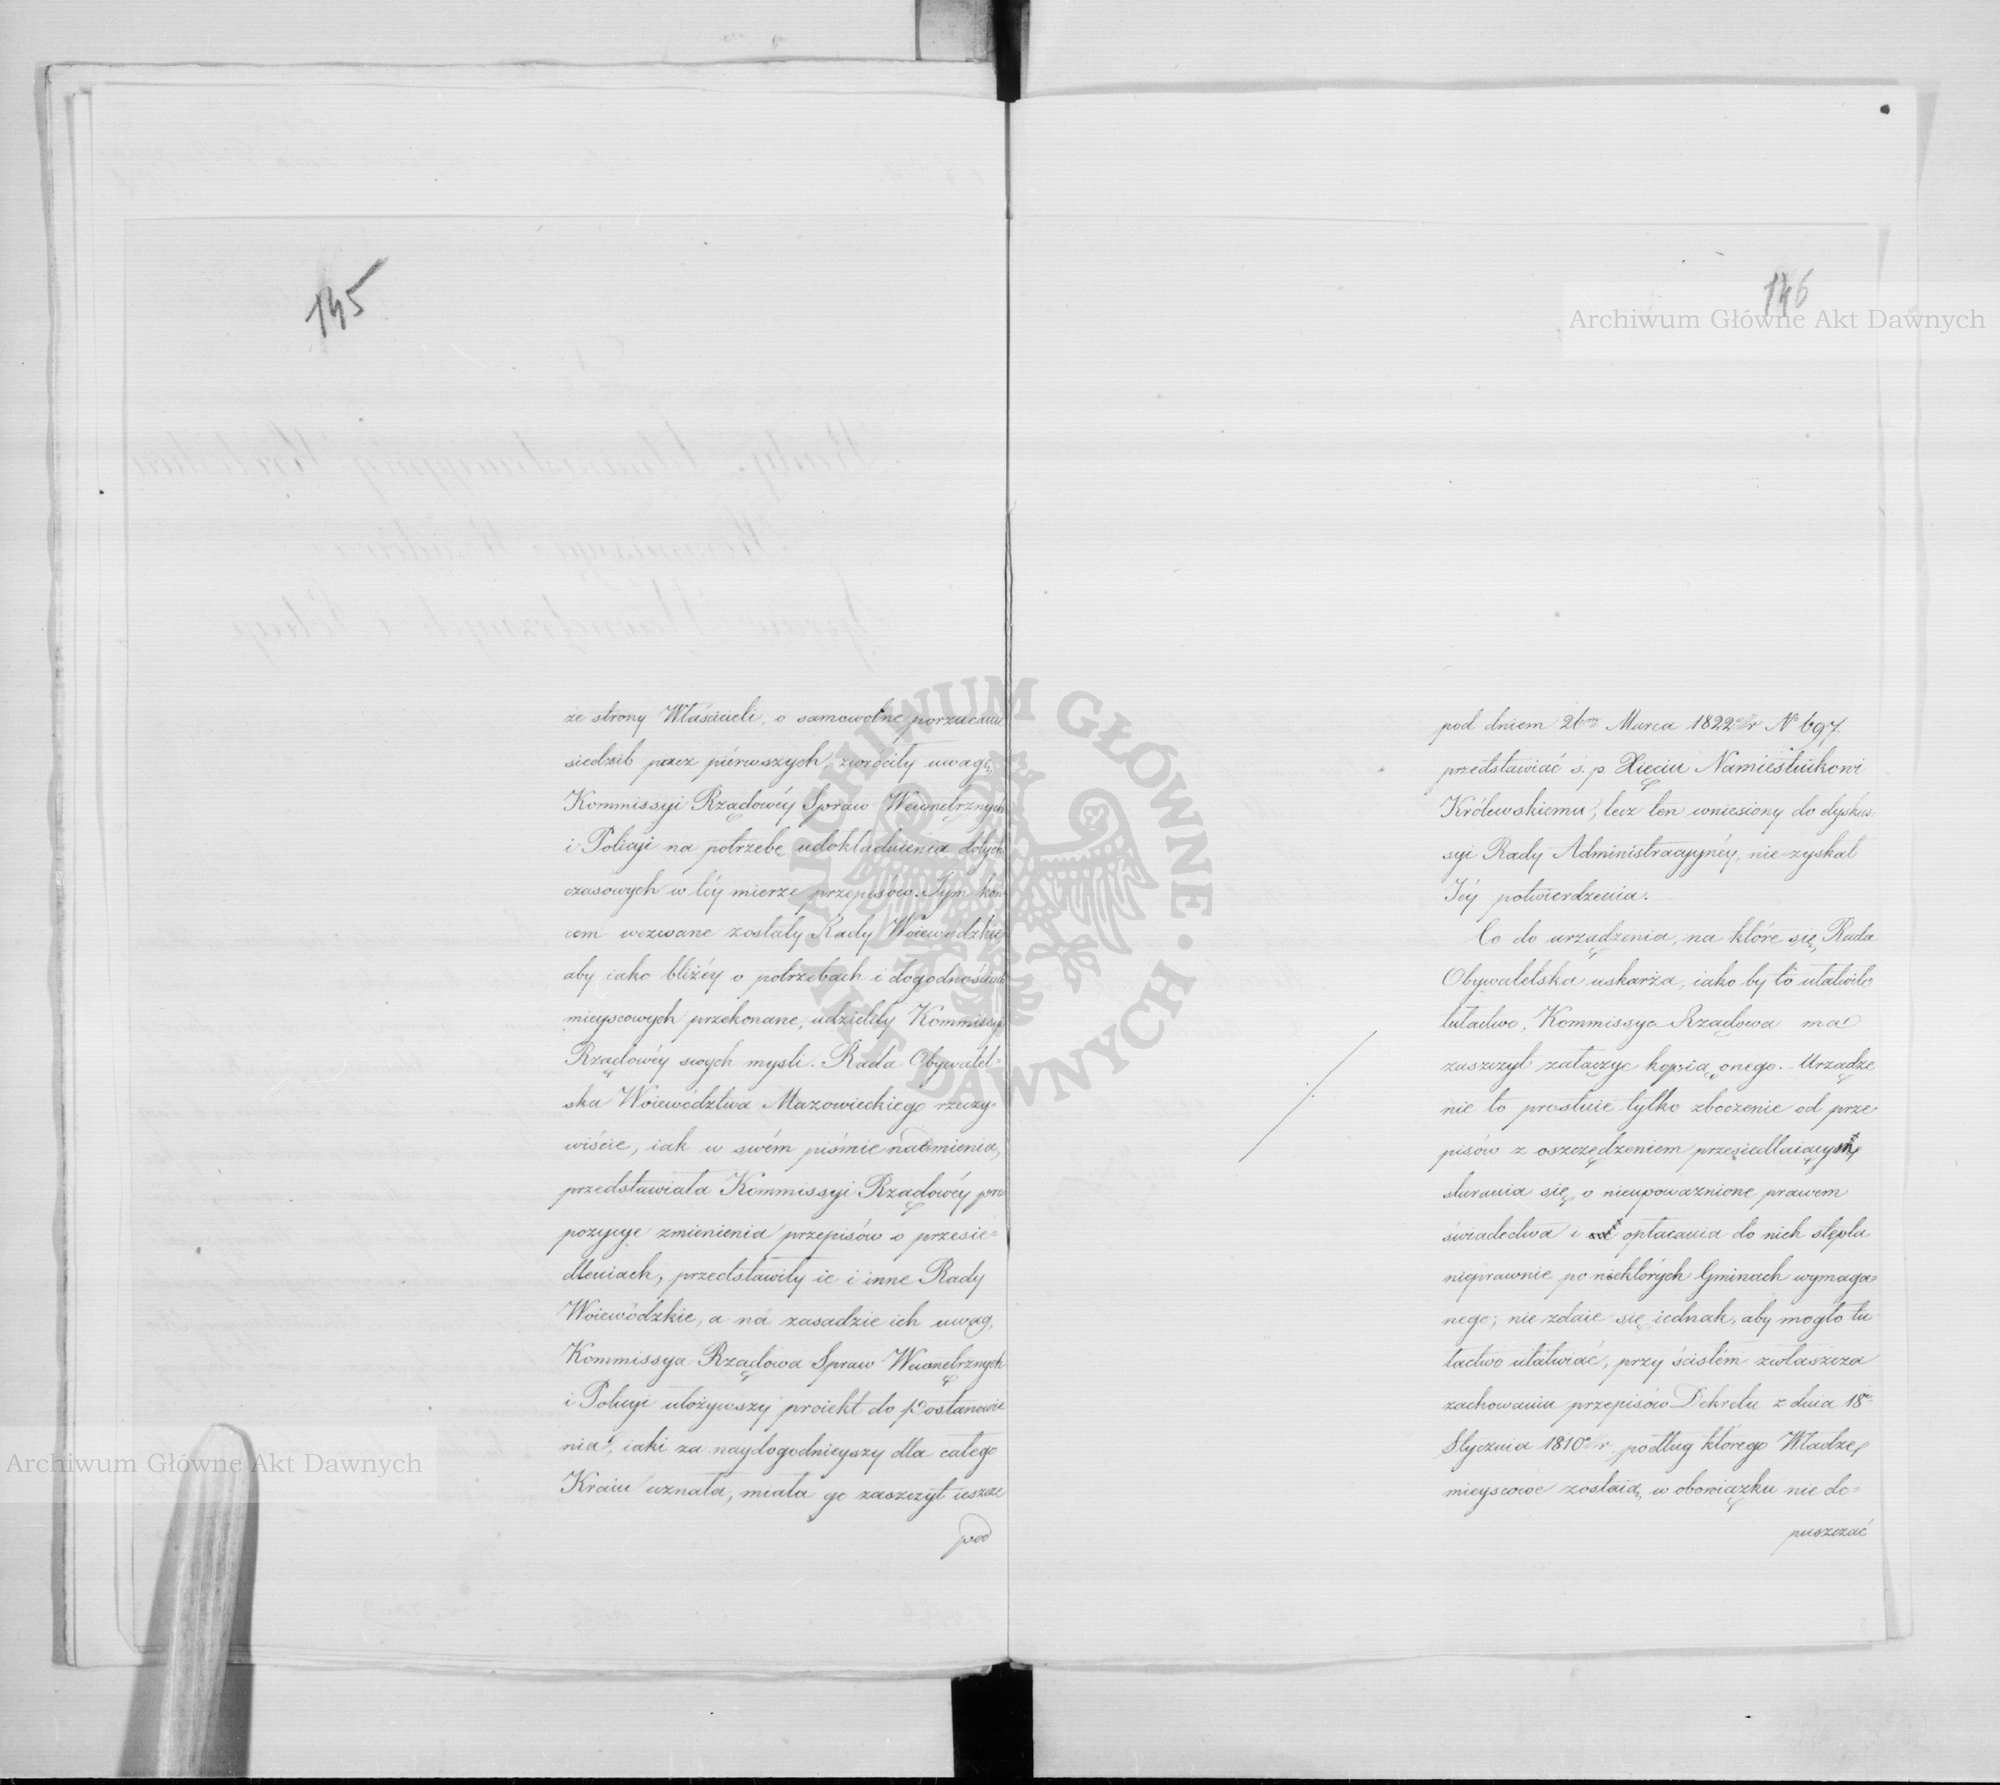 145
ze strony Właścicieli, o samowolne porzucanie
siedzib przez piérwszych, zwróciły uwagę
Kommissyi Rządowéy Spraw Wewnętrznych
i Policyi na potrzebę udokładnienia dotych
czasowych w téy mierze przepisów. Tym koń
cem wezwane zostały Rady Woiewódzkie
aby iako bliżéy o potrzebach i dogodnościach
mieyscowych przekonane, udzieliły Kommissyi
Rządowéy swych mysli. Rada Obywatel=
ska Woiewództwa Mazowieckiego rzeczy=
wiście, iak w swém piśmie nadmienia,
przedstawiała Kommissyi Rządowéy pro
pozycye zmienienia przepisów o przesie=
dleniach, przedstawiły ie i inne Rady
Woiewódzkie, a na zasadzie ich uwag,
Kommissya Rządowa Spraw Wewnętrznych
i Policyi ułożywszy proiekt do Postanowie
nia, iaki za naydogodnieyszy dla całego
Kraiu uznała, miała go zaszczyt ieszcze
pod
146
pod dniem 26 Marca 1822 r N 697
przedstawiać ś. p. Xięciu Namiestnikowi
Królewskiemu, lecz ten wniesiony do dyskus=
syi Rady Administracyynéy, nie zyskał
Jéy potwierdzenia.
Co do urządzenia, na które się Rada
Obywatelska uskarża, iako by to ułatwiło
tułactwo, Kommissya Rządowa ma
zaszczyt załączyć kopią onego. Urządze
nie to prostuie tylko zboczenie od prze=
pisów z oszczędzeniem przesiedlaiącym
starania się o nieupoważnione prawem
świadectwa i opłacania do nich stępla
nieprawnie po niektórych Gminach wymaga=
nego; nie zdaie się iednak, aby mogło tu=
łactwo ułatwiać, przy ścisłém zwłaszcza
zachowaniu przepisów Dekretu z dnia 18
Stycznia 1810 r podług którego Władze
mieyscowe zostaią w obowiązku nie do=
puszczać
Archiwum Główne Akt Dawnych
Archiwum Główne Akt Dawnych
ARCHIWUM GŁÓWNE · AKT DAWNYCH ·